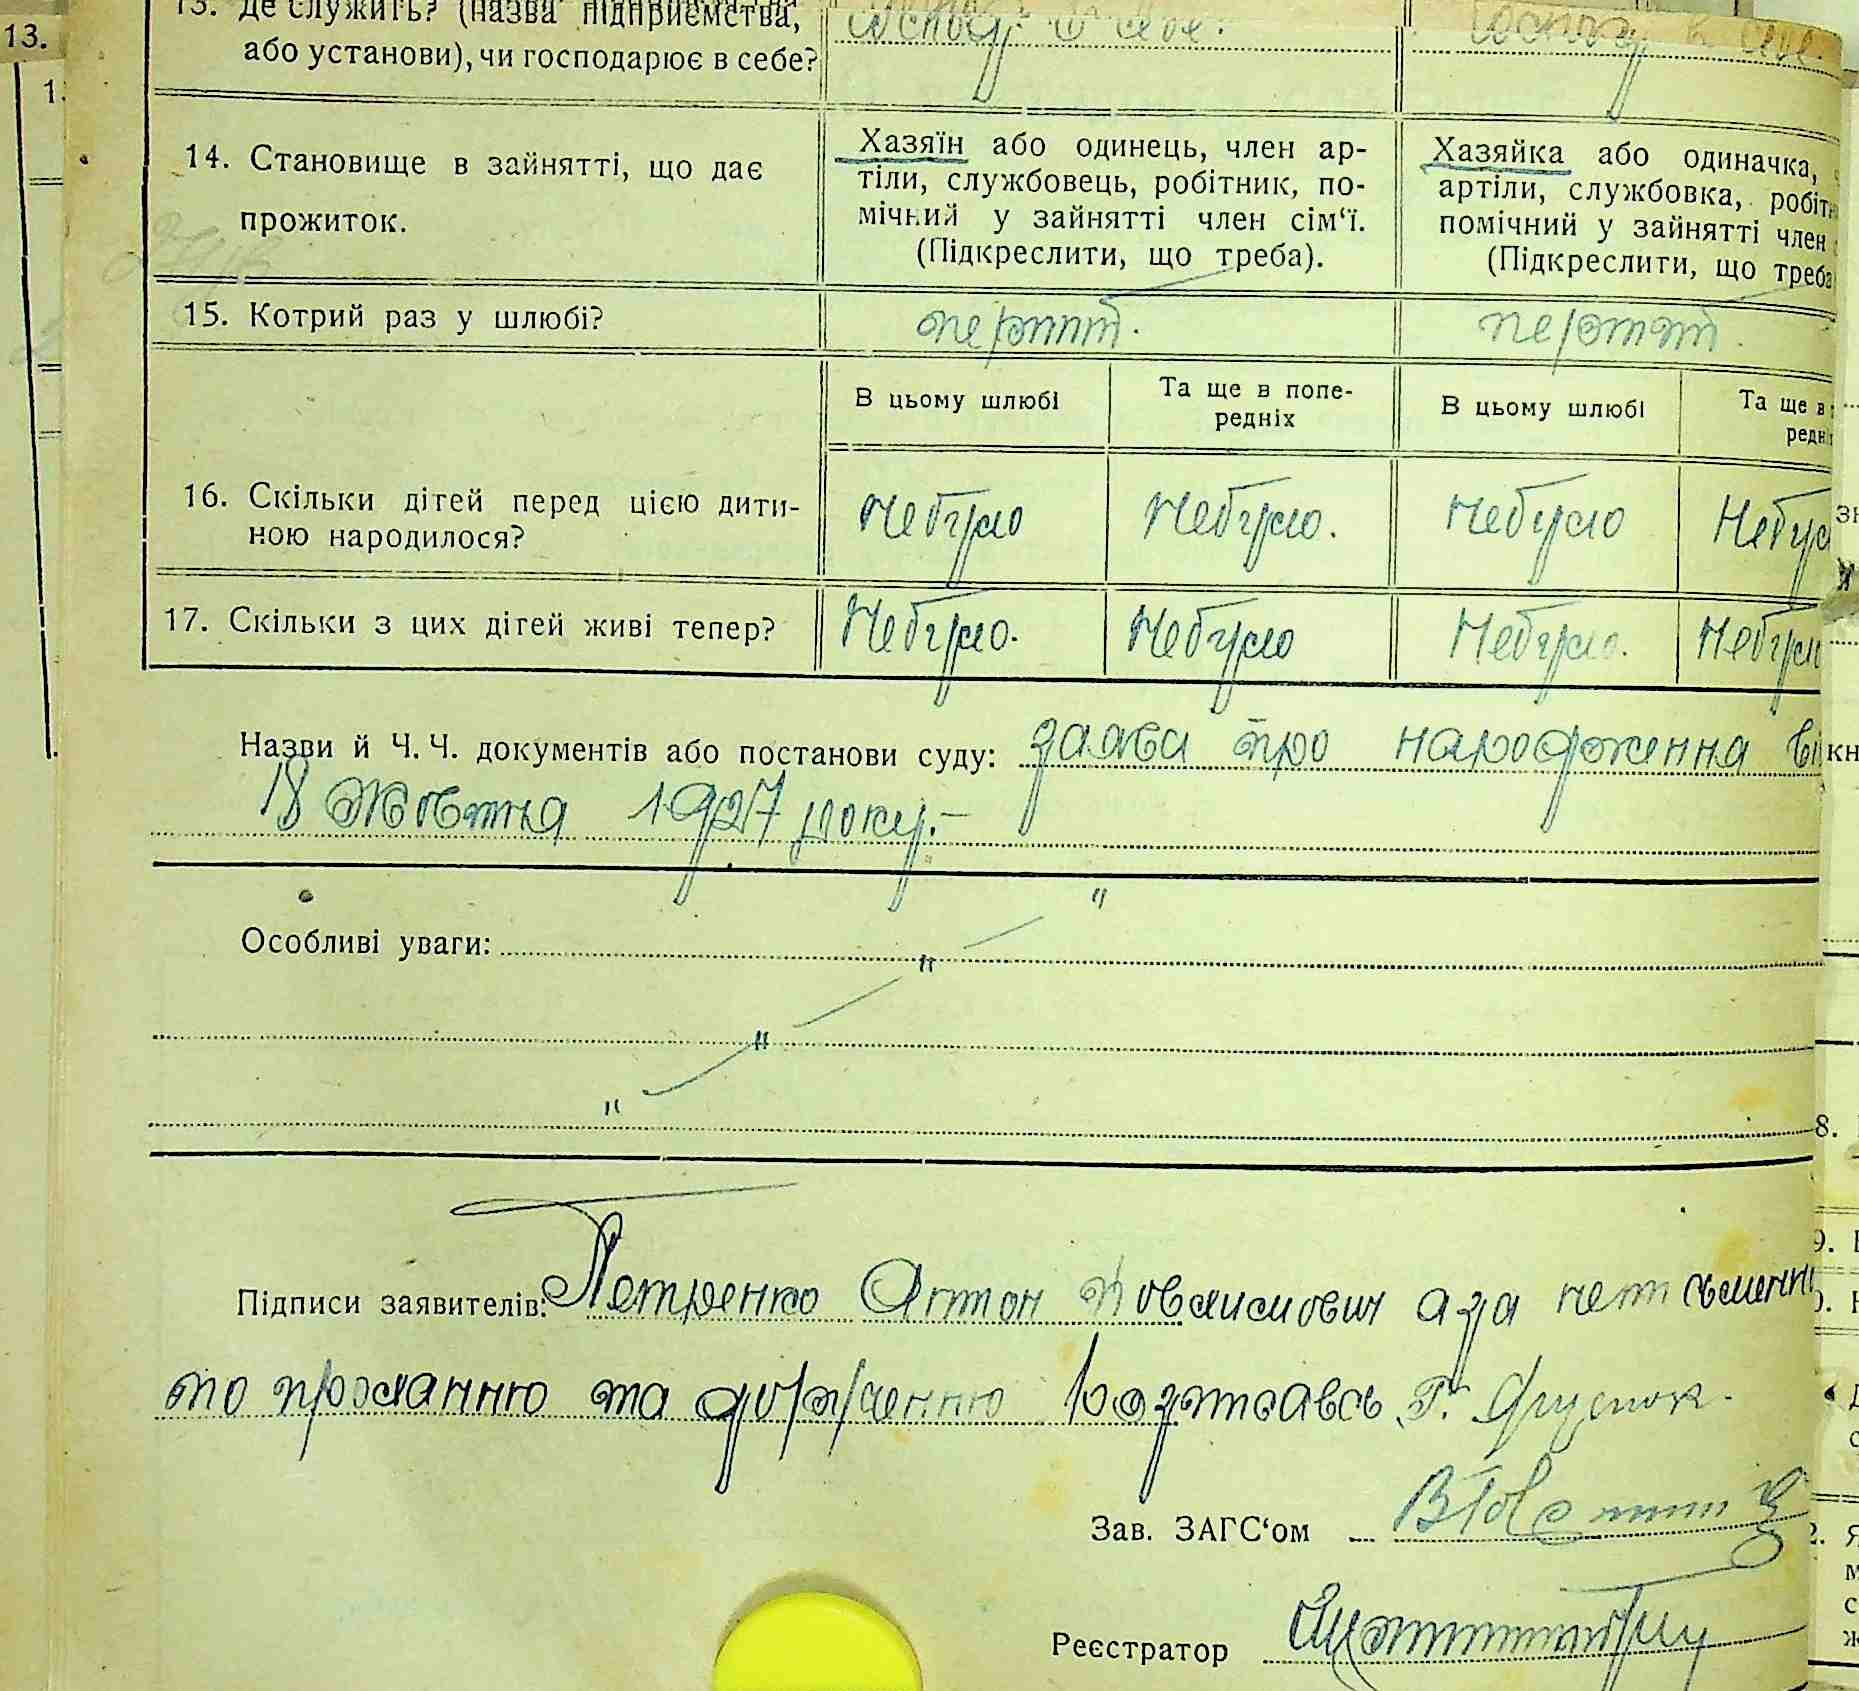 13. Де служить? (назва підприємства, Господ. в себе. Господ в себе.
або установи), чи господарює в себе?
14. Становище в зайнятті, що дає прожиток.
Хазяїн або одинець, член ар-
тіли, службовець, робітник, по-
мічний у зайнятті член сім‘ї.
(Підкреслити, що треба).
Хазяйка або одиначка,
артіли, службовка, робіт
помічний у зайнятті член
(Підкреслити, що треба
15. Котрий раз у шлюбі? перший. перший.
В цьому шлюбі
Та ще в попе-
редніх
В цьому шлюбі
Та ще в
редн
16. Скільки дітей перед цією дити-
ною народилося?
Небуло Небуло. Небуло Небул
17. Скільки з цих дітей живі тепер? Небуло. Небуло Небуло. Небуло
Назви й Ч. Ч. документів або постанови суду: заява про народження від
18 жовтня 1927 року.–
Особливі уваги:
Підписи заявителів: Петренко Антон а за неписьменни
по проханню та дорученню розписавсь Г.
Зав. ЗАГС‘ом
Реєстратор